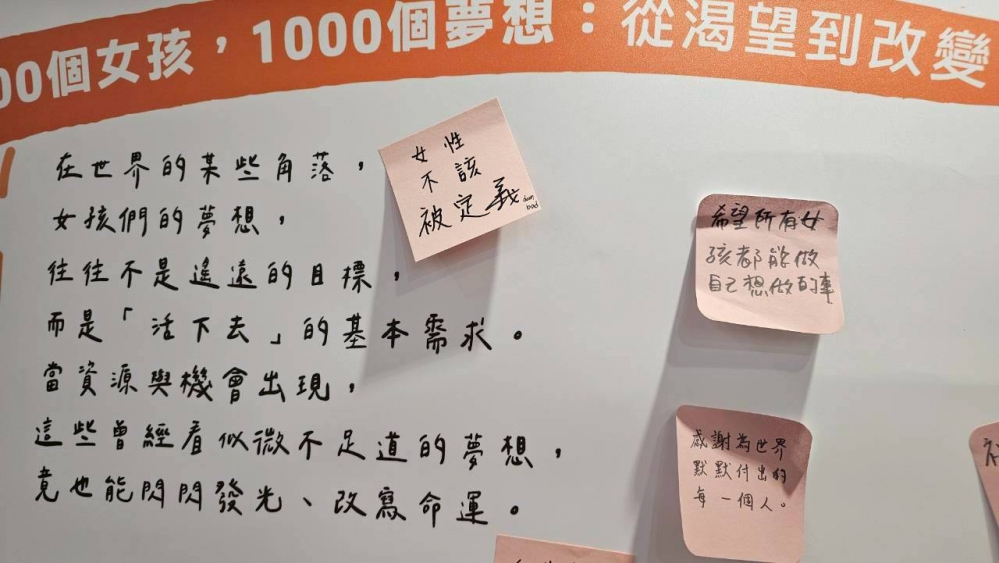 00個女孩，1000個夢想：從渴望到改變
在世界的某些角落，
女孩們的夢想，
往往不是遙遠的目標，
而是「活下去」的基本需求。
當資源與機會出現，
這些曾經看似微不足道的夢想，
竟也能閃閃發光、改寫命運。
女性
不該
被定義
希望所有女
孩都能做
自己想做的事
感謝為世界
默默付出的
每一個人。